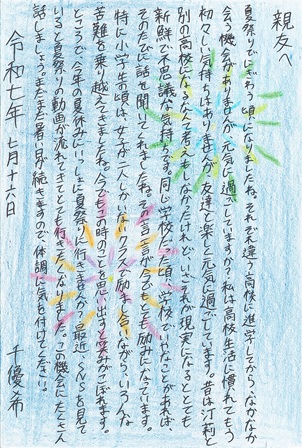 親友へ
夏祭りでにぎわう頃になりましたね。それぞれ違う高校に進学してから、なかなか
会う機会がありませんが、元気に過ごしていますか？私は高校生活に慣れてもう
初々しい気持ちはありませんが、友達と楽しく元気に過ごしています。昔は汀莉と
別の高校になるなんて考えもしなかったけれど、いざこれが現実になるととても
新鮮で不思議な気持ちです。同じ学校だった頃、学校でいやなことがあれば、
そのたびに話を聞いてくれましたね。その一言一言が今でもとても励みになっています。
特に小学生の頃は、女子が二人しかいないクラスで励まし合いながら、いろんな
苦難を乗り越えてきましたね。今でもこの時のことを思い出すと笑みがこぼれます。
ところで、今年の夏休みにいっしょに夏祭りに行きませんか？最近、SNSを見て
いると夏祭りの動画が流れてきてとても行きたくなりました。この機会にたくさん
話しましょう。まだまだ暑い日が続きますので、体調に気を付けてください。
令和七年 七月十六日
千優希